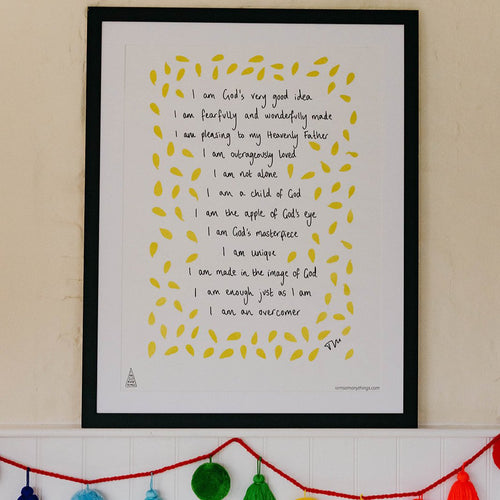 I am God's very good idea
I am fearfully and wonderfully made
I am pleasing to my Heavenly Father
I am outrageously loved
I am not alone
I am a child of God
I am the apple of God's eye
I am God's masterpiece
I am unique
I am made in the image of God
I am enough just as I am
I am an overcomer